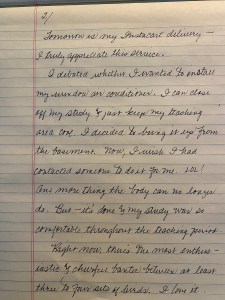 2/
Tomorrow is my Instacart delivery —
I truly appreciate this service.
I debated whether I wanted to install
my window air conditioner. I can close
off my study & just keep my teaching
area cool. I decided to bring it up from
the basement. Now, I wish I had
contacted someone to do it for me. LOL!
One more thing the body can no longer
do. But — it's done & my study was so
comfortable throughout the teaching period.
Right now, there's the most enthus-
iastic & cheerful banter between at least
three to four sets of birds. I love it